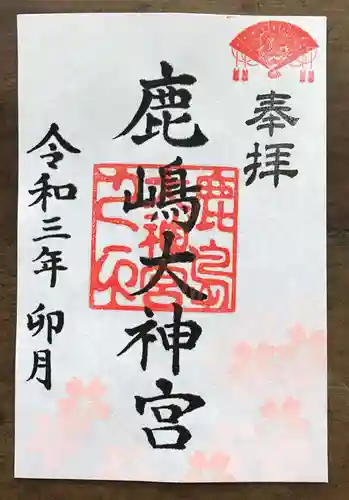 奉拝
鹿嶋大神宮
令和三年 卯月